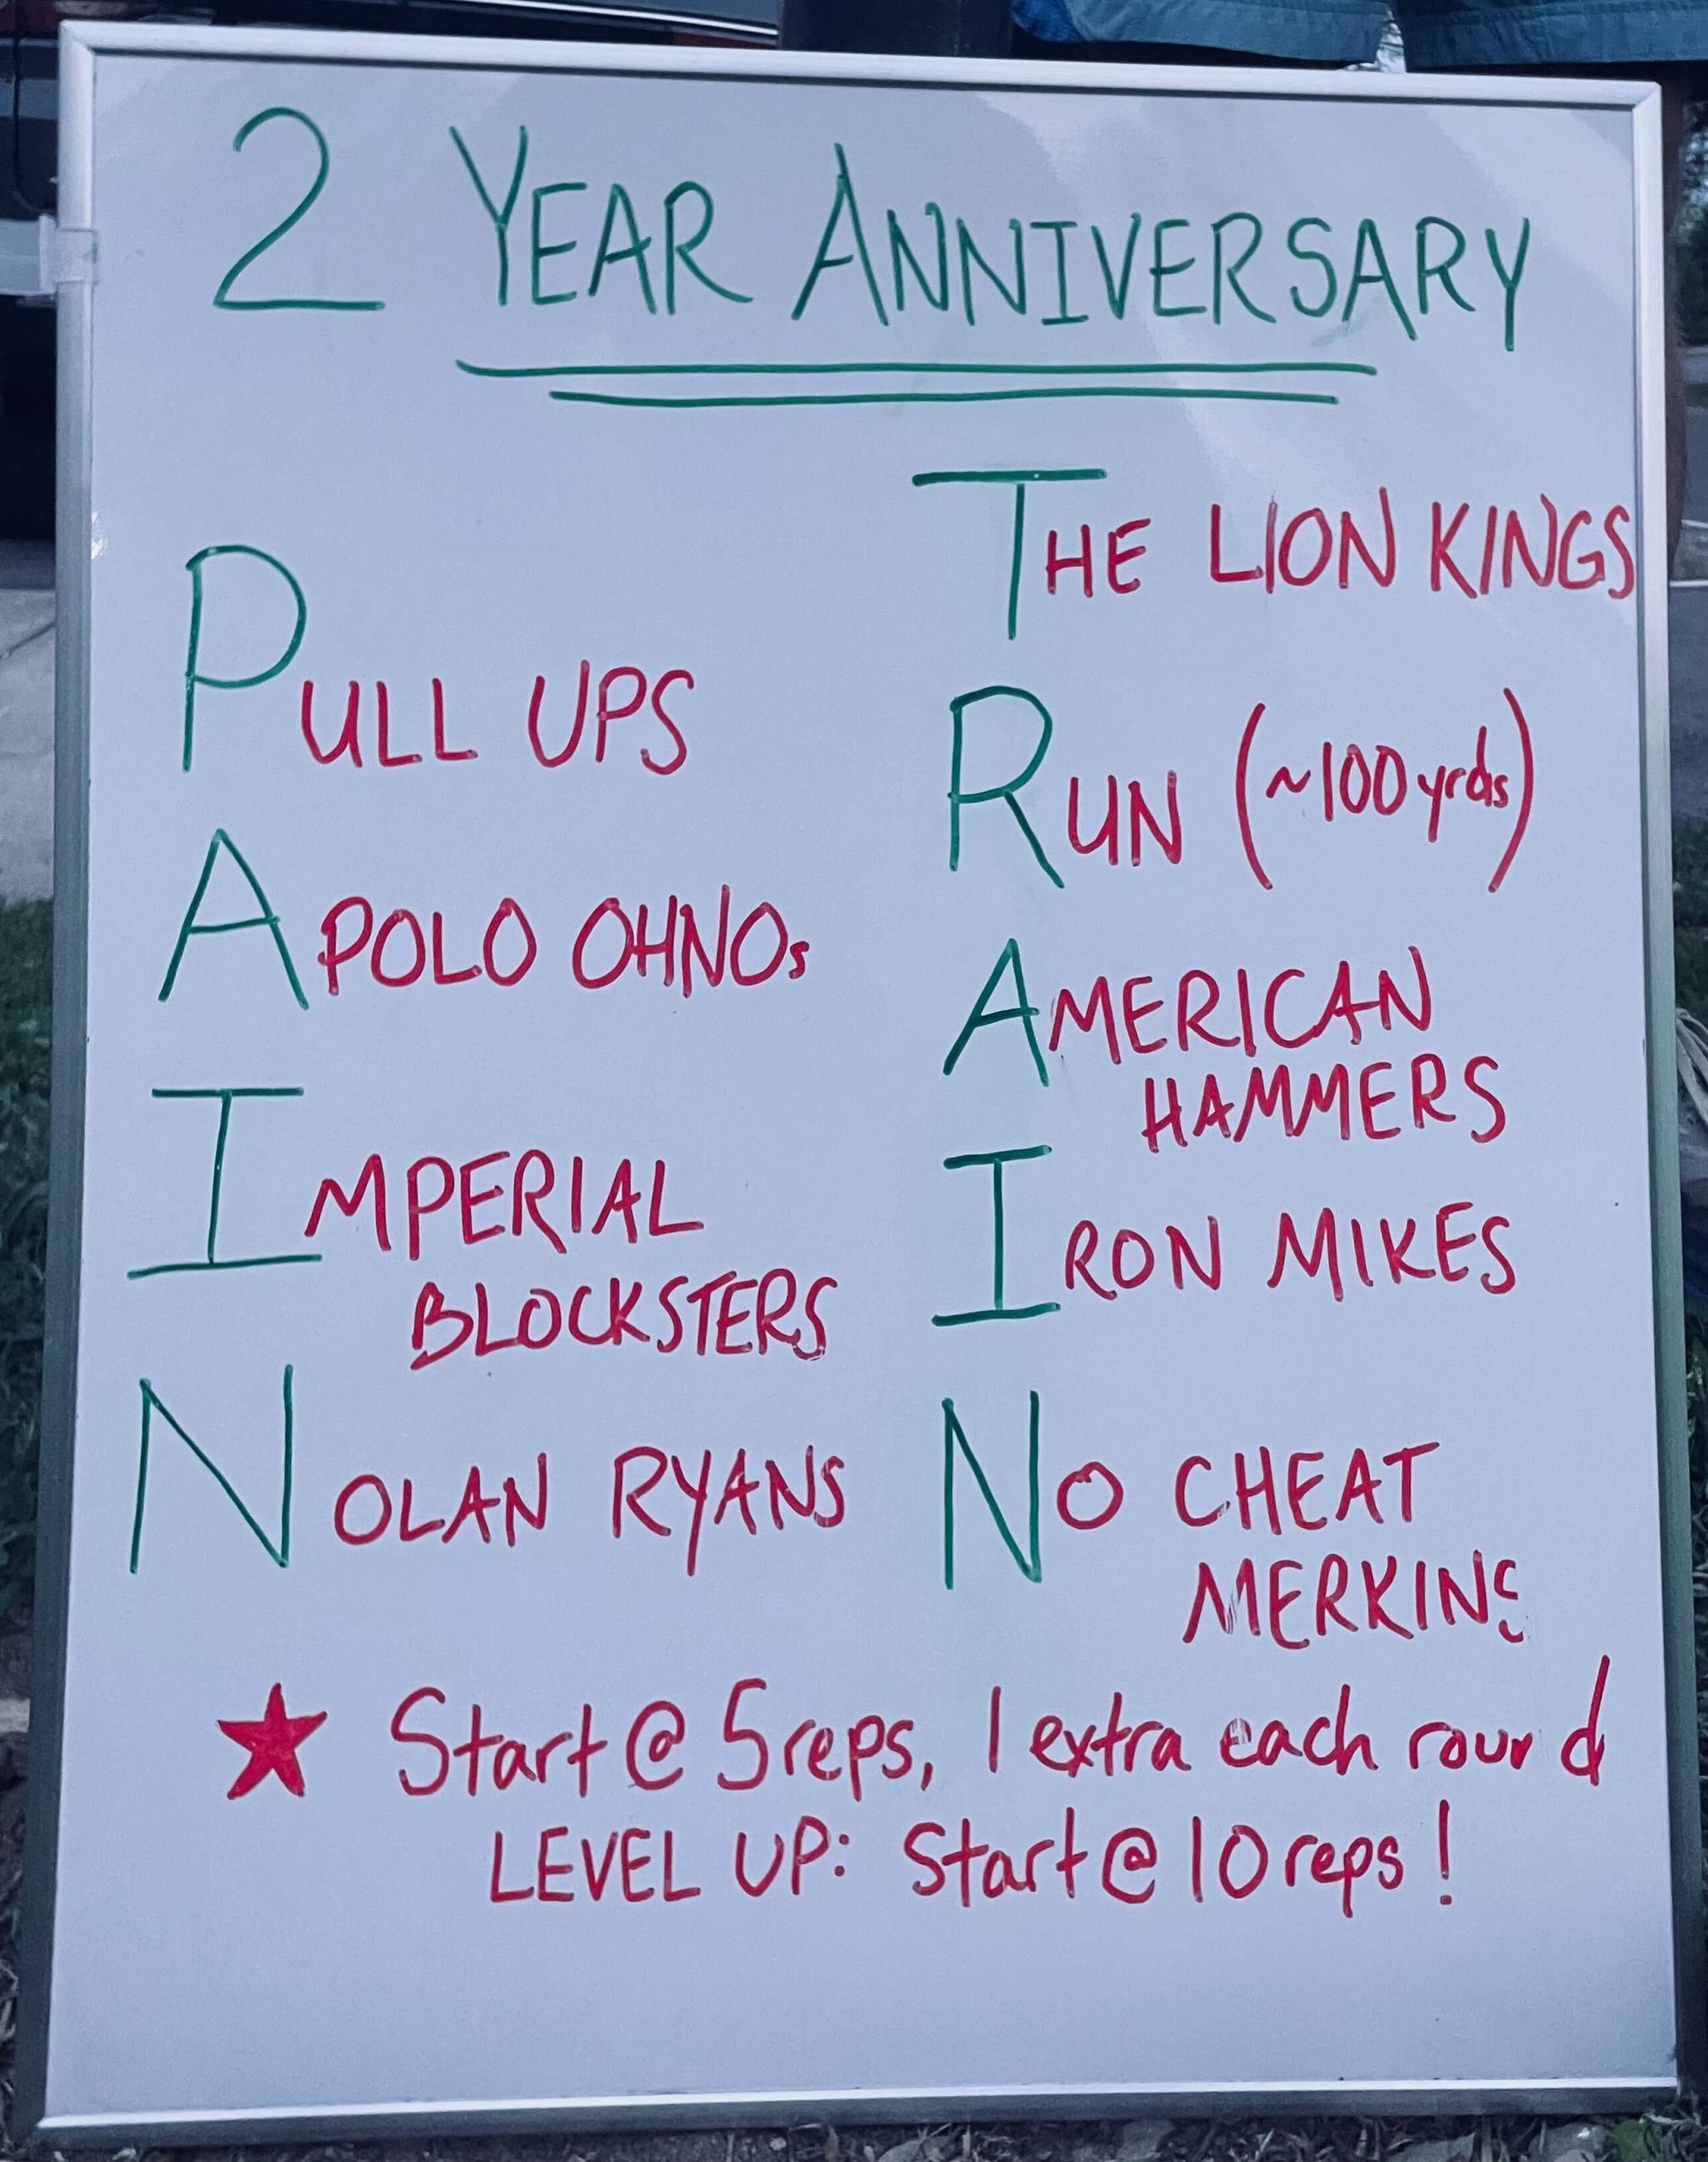 2 YEAR ANNIVERSARY
PULL UPS
APOLO OHNOs
IMPERIAL
BLOCKSTERS
NOLAN RYANS
THE LION KINGS
RUN (~100 yrds)
AMERICAN
HAMMERS
IRON MIKES
NO CHEAT
MERKINS
★ Start @ 5 reps, 1 extra each round
LEVEL UP: Start @ 10 reps!